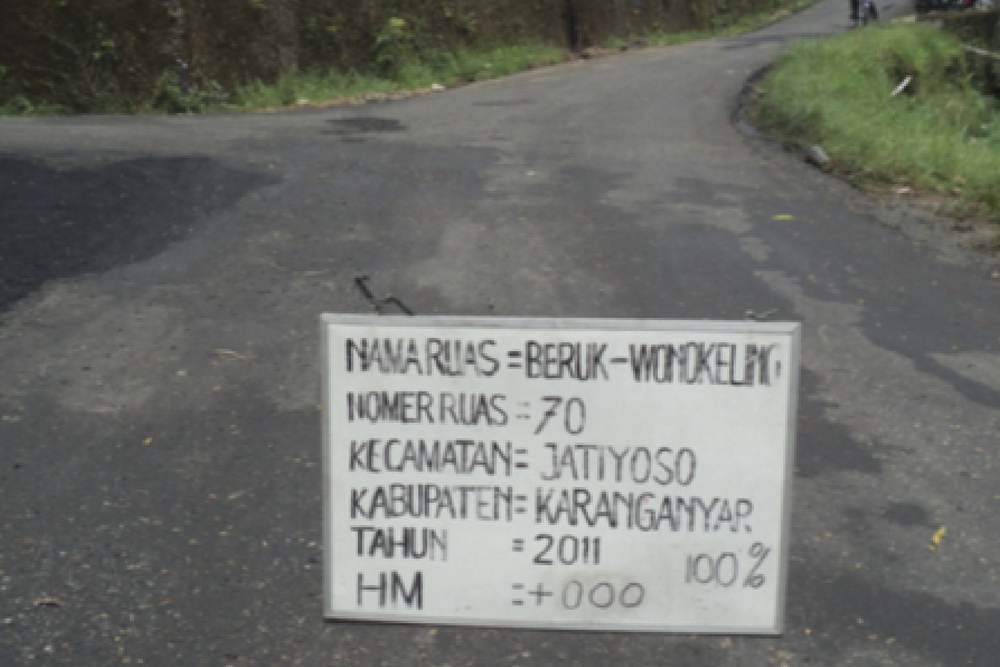 NAMA RUAS = BERUK-WONOKELING
NOMER RUAS = 70
KECAMATAN = JATIYOSO
KABUPATEN = KARANGANYAR
TAHUN = 2011
100%
HM = +000